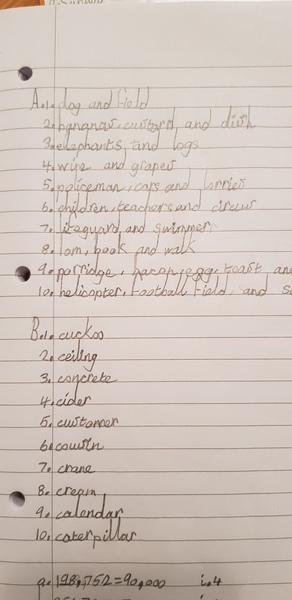 A.1. dog and field
2. bananas, custard, and dish
3. elephants and logs
4. wine and grapes
5. policeman, cars and lorries
6. children, teachers and circus
7. lifeguard and swimmer
8. Tom, book and walk
9. porridge, bacon, egg, toast and
10. helicopter, football field, and
B.1. cuckoo
2. ceiling
3. concrete
4. cider
5. customer
6. cousin
7. crane
8. cream
9. calendar
10. caterpillar
a. 198,752=90,000 i.4